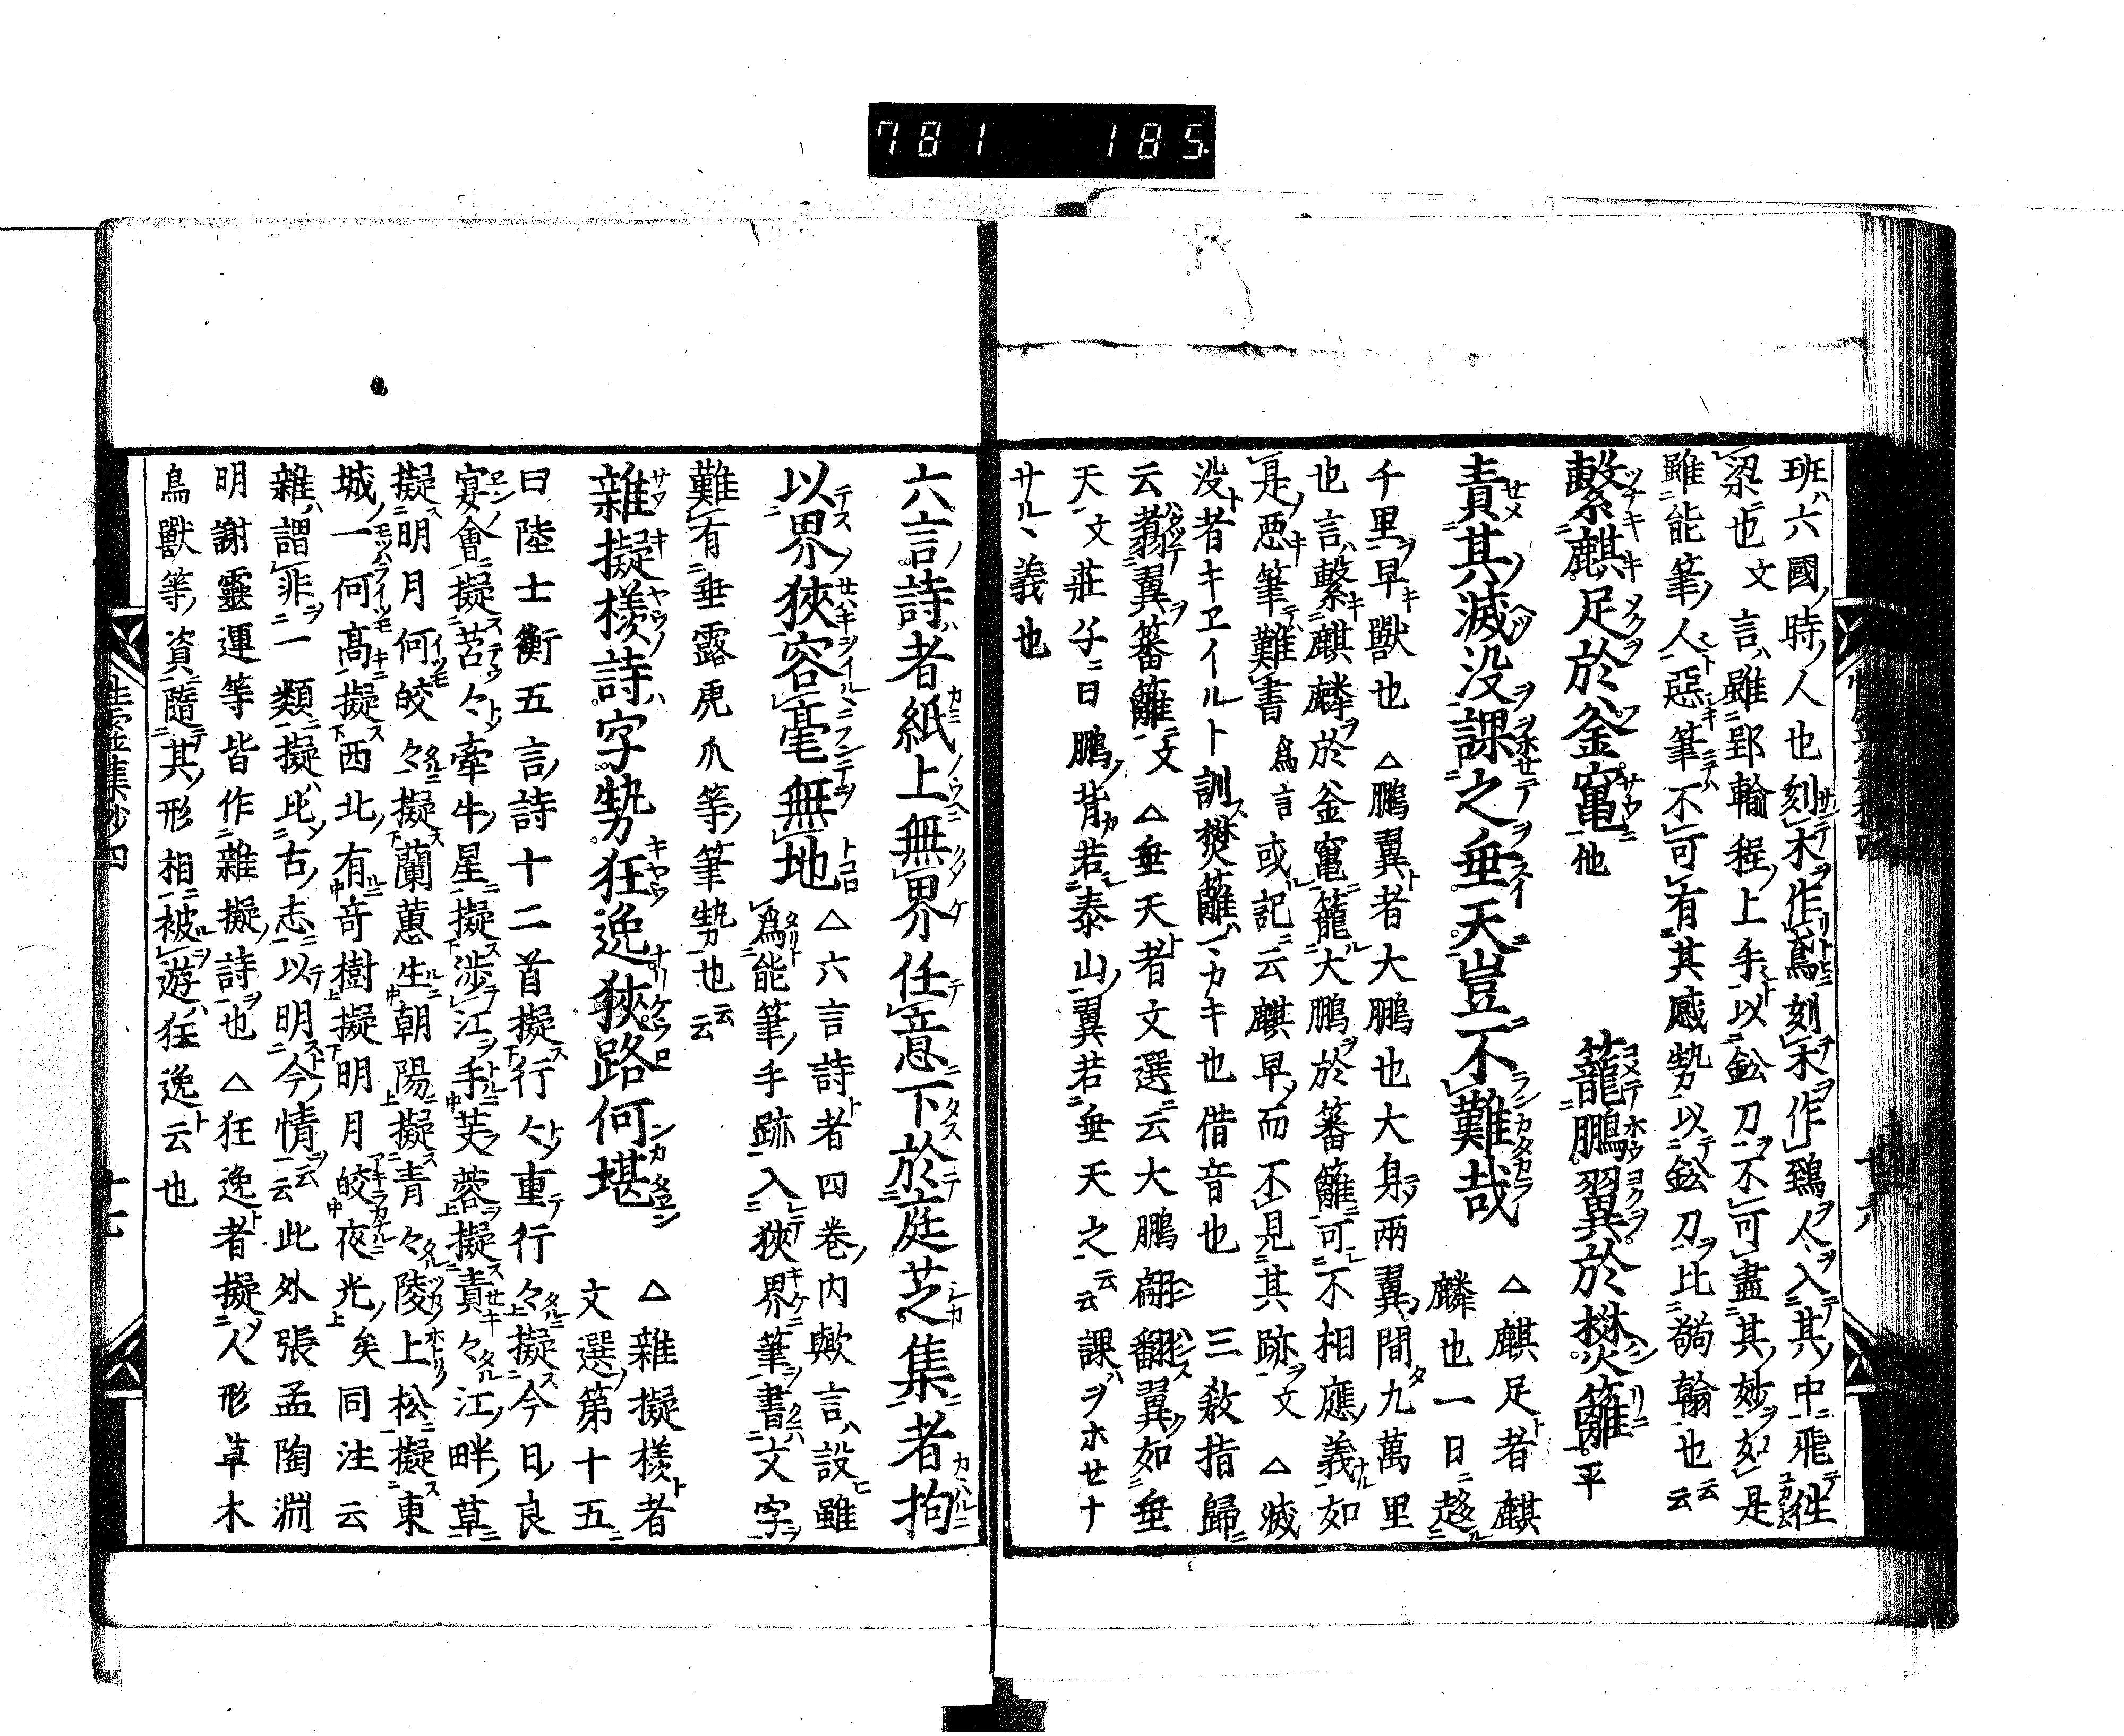 781 185
班六國時人也刻木作鳶刻木作鵄人入其中飛往
梁也文言雖郢輪程上手以鈆刀不可盡其妙如是
雖能筆人惡筆不可有其感勢以鈆刀比鷂翰也云云
繫麒足於釜竃他 籠鵬翼於樊籬平
責其滅没課之垂天豈不難哉 △麒足者麒
麟也一日趁
千里早獸也△鵬翼者大鵬也大身兩翼間九萬里
也言繫麒麟於釜竃籠大鵬於藩籬可不相應義如
是悪筆難書為言或記云麒早而不見其跡文△滅
没者キヱイルト訓樊籬ハカキ也借音也三教指歸
云翥翼藩籬文△垂天者文選云大鵬翩翻翼如垂
天文莊子曰鵬背若泰山翼若垂天之云云課ハヲホセナ
サルヽ義也
六言詩者紙上無界任意下於庭芝集者拘
以界狹容毫無地 △六言詩者四卷内歟言設雖
為能筆手跡入狹界筆書文字
難有垂露虎爪等筆勢也云云
雜擬樣詩字勢狂逸狹路何堪 △雜擬樣者
文選第十五
曰陸士衡五言詩十二首擬行々重行々擬今日良
宴會擬苕々牽牛星擬涉江手芙蓉擬責々江畔草
擬明月何皎々擬蘭蕙生朝陽擬青々陵上松擬東
城一何髙擬西北有竒樹擬明月皎夜光矣同注云
雜謂非一類擬比古志以明今情云云此外張孟陶淵
明謝靈運等皆作雜擬詩也△狂逸者擬人形草木
鳥獸等資隨其形相被遊狂逸云也